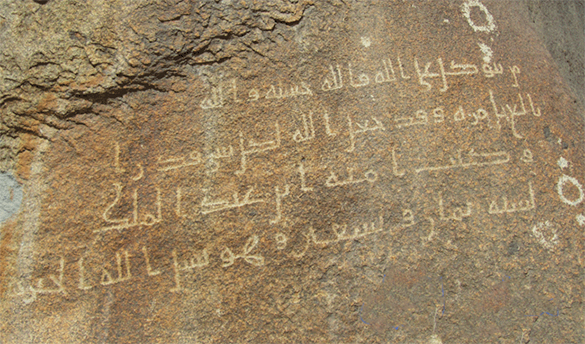 من يتوكل على الله فالله حسبه و الله
بالغ امره و قد جعل الله لكل شى قدرا
و كتب امية ابن عبد الملك
لسنة ثمان و تسعين و هو يسل الله الجنة